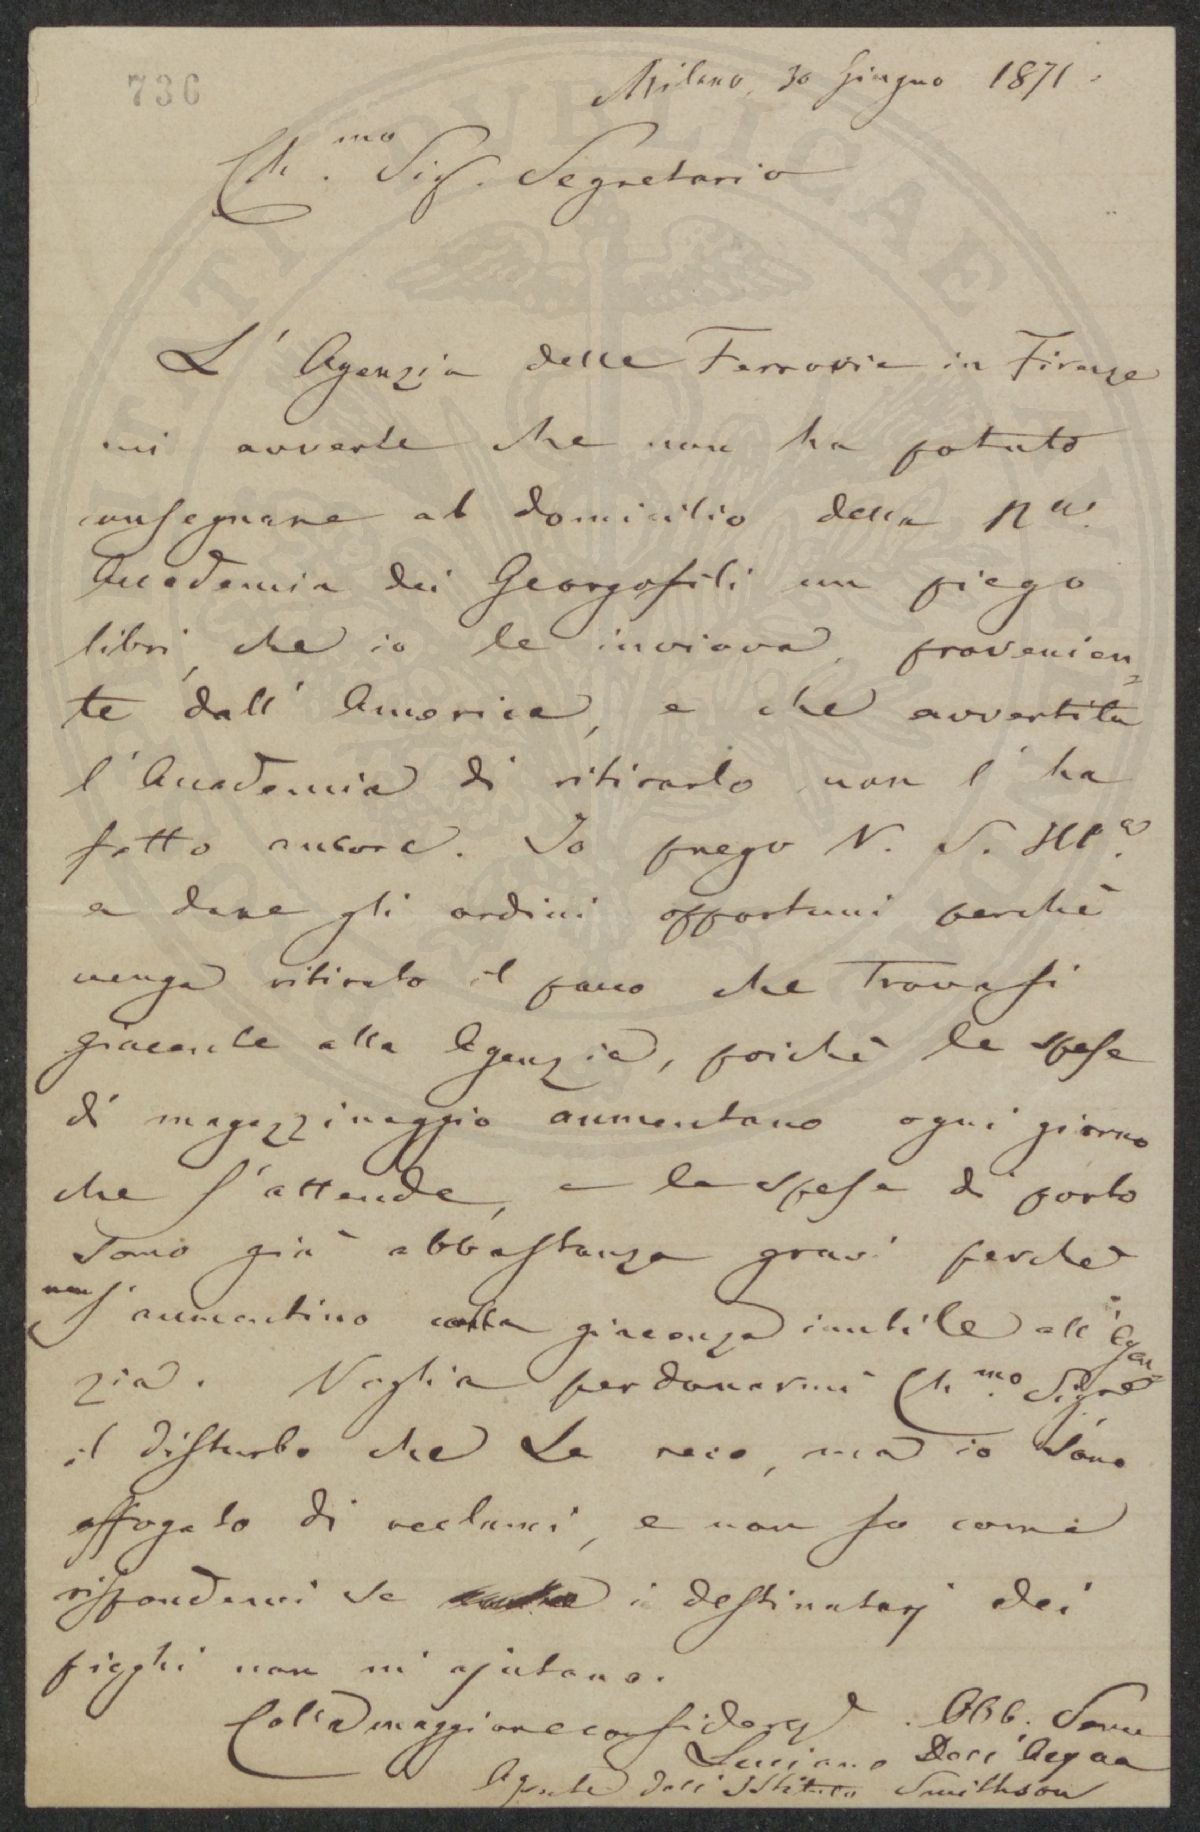 736
Milano, 30 Giugno 1871.
Ch.mo Sig. Segretario
L'Agenzia delle Ferrovie in Firenze
mi avverte che non ha potuto
consegnare al domicilio della
Accademia dei Georgofili un piego
libri, che io le inviava, provenien=
te dall'America, e che avvertita
l'Accademia di ritirarlo non l'ha
fatto ancora. Io prego V. S. Ill.a
a dare gli ordini opportuni perchè
venga ritirato il pacco che trovasi
giacente alla Agenzia, poichè le spese
di magazzinaggio aumentano ogni giorno
che s'attende, e le spese di porto
sono già abbastanza gravi perchè
non s'aumentino colla giacenza inutile all'Agen=
zia. Voglia perdonarmi Ch.mo Sigre
il disturbo che Le reco, ma io sono
affogato di reclami, e non so come
rispondervi se i destinatarj dei
pieghi non mi ajutano.
Colla maggiore considerze Obb. Servo
Luciano Dell'Acqua
Agente dell'Istituto Smithson